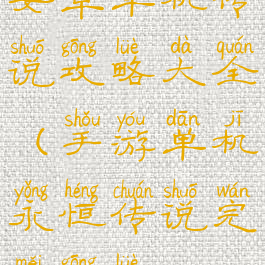 shuō gōng lüè dà quán
说攻略大全
shǒu yóu dān jī
(手游单机
yǒng héng chuán shuō wán
永恒传说完
měi gōng lüè